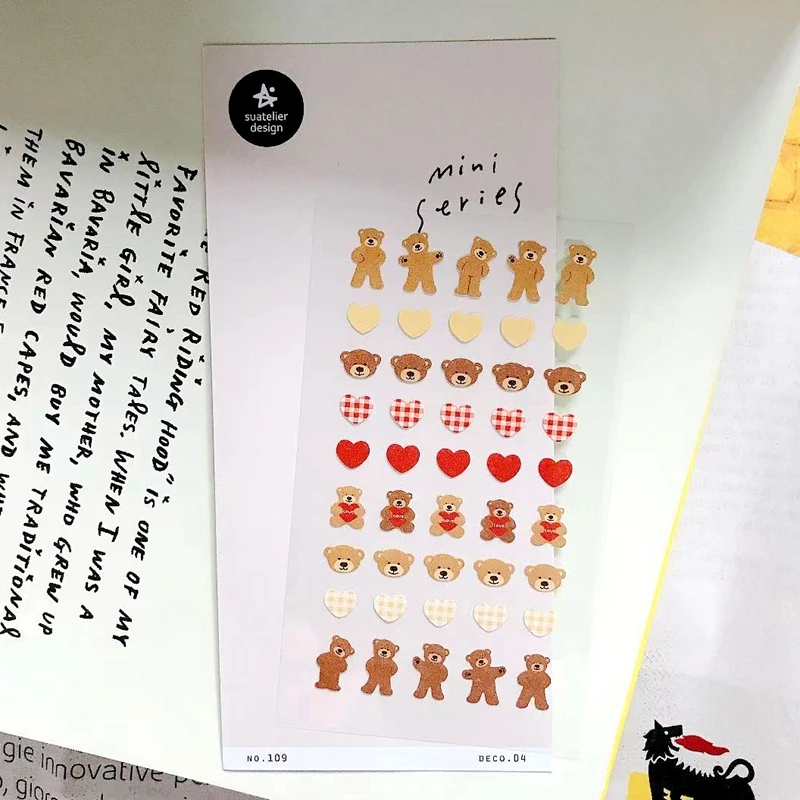 suatelier
design
mini
series
NO.109
DECO.04
RED RIDING HOOD" IS ONE OF MY
FAVORITE FAIRY TALES. WHEN I WAS A
LITTLE GIRL, MY MOTHER, WHO GREW UP
IN BAVARIA, WOULD BUY ME TRADITIONAL
BAVARIAN RED CAPES, AND
THEM IN FRANCE
gie innovative